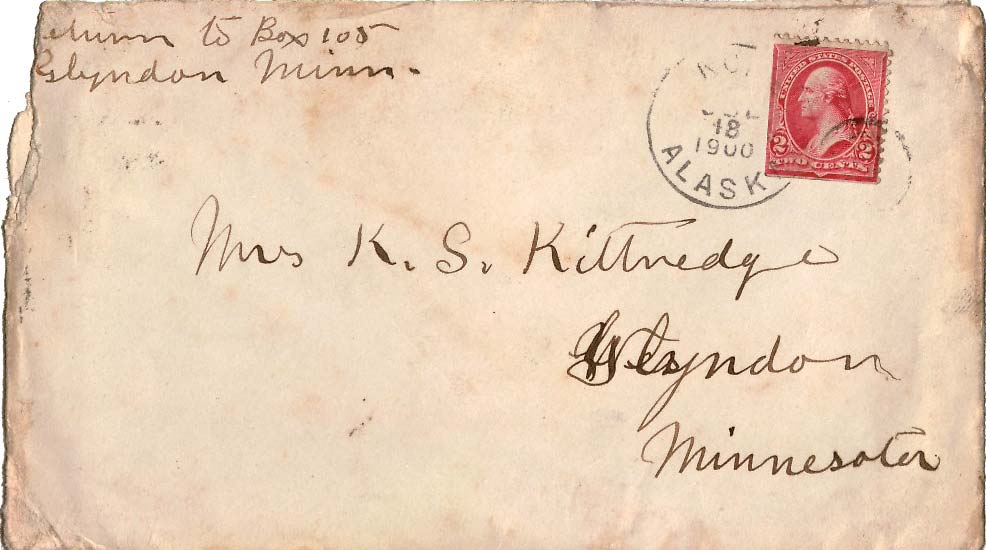 eturn to Box 105
Glyndon Minn.
18
1900
ALASK
UNITED STATES POSTAGE
2 2
TWO CENTS
Mrs K. S. Kittredge
Glyndon
Minnesota